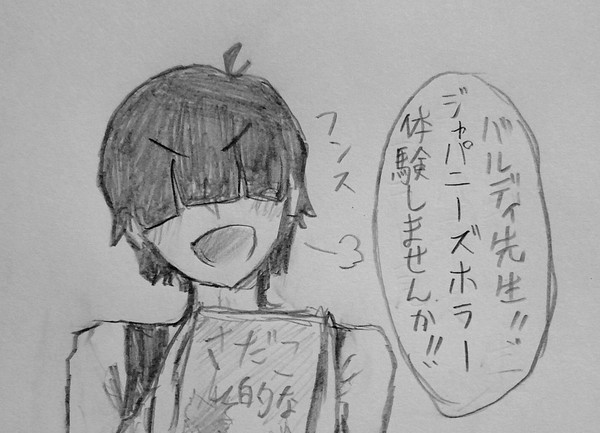 バルディ先生!!
ジャパニーズホラー
体験しませんか!!
フンス
さだこ
的な